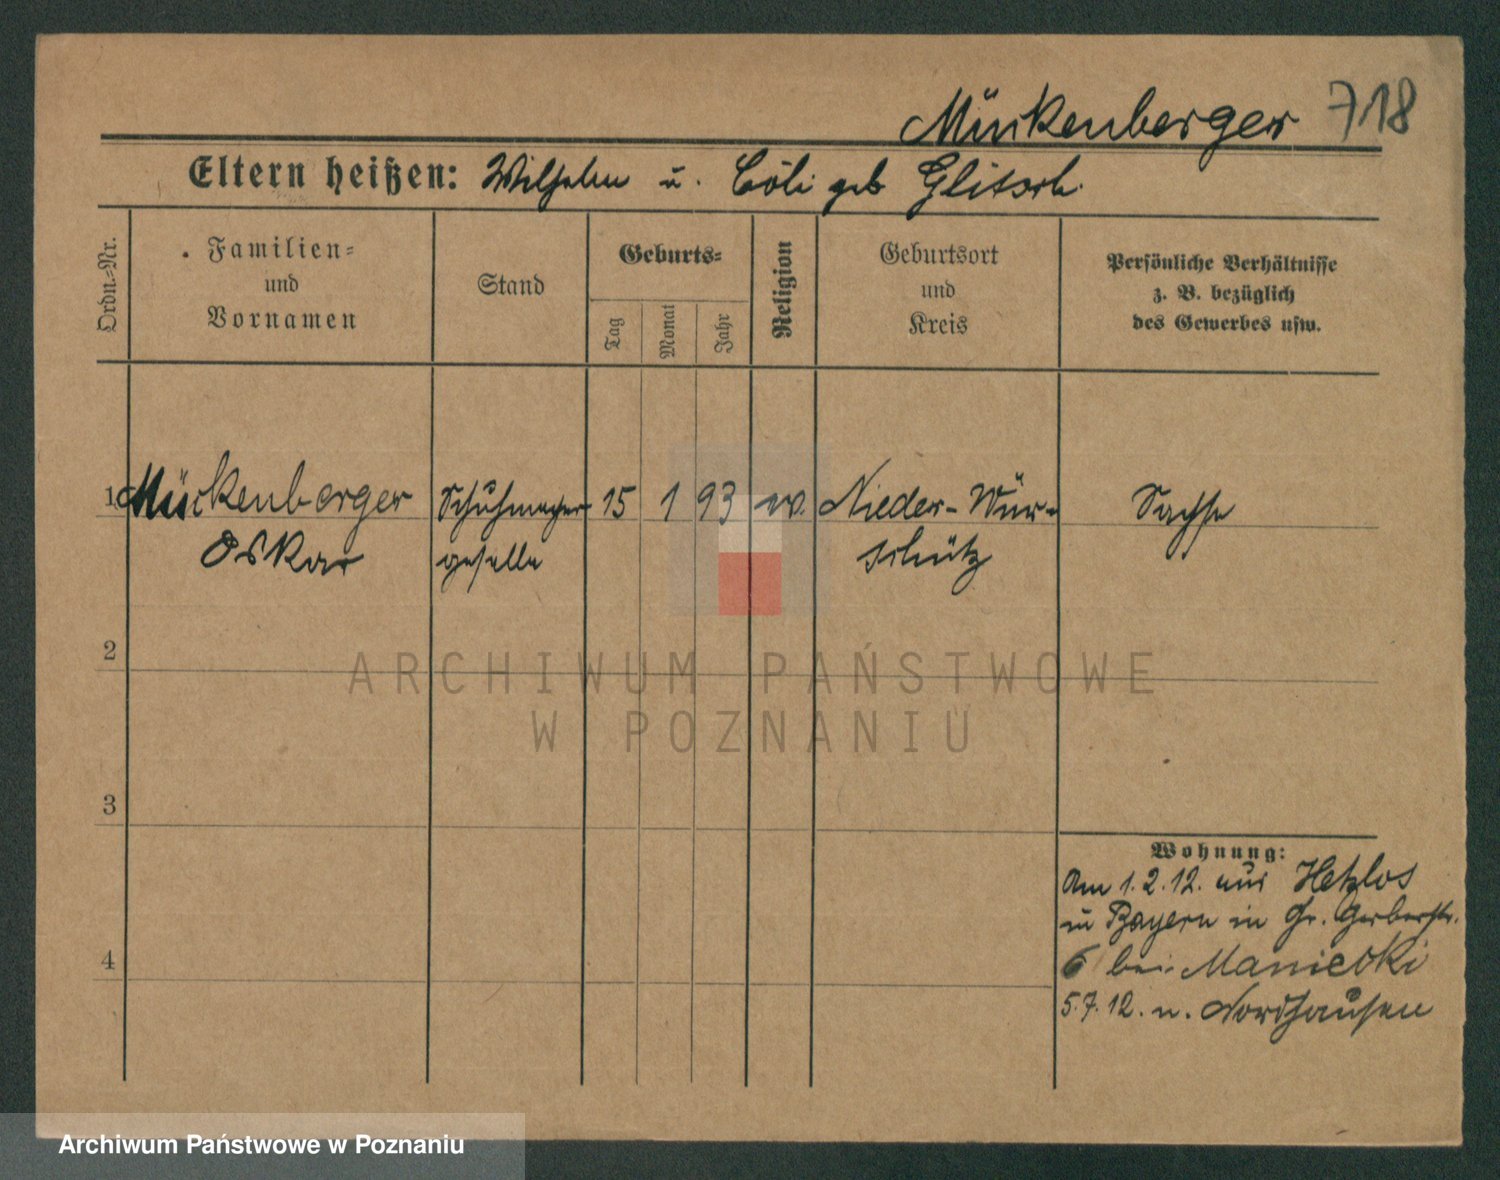 Mückenberger 718
Eltern heißen: Wilhelm u. Cöli geb Glitsch.
Ordn.-Nr.
Familien-
und
Vornamen
Stand
Geburts-
Tag
Monat
Jahr
Religion
Geburtsort
und
Kreis
Persönliche Verhältnisse
z. B. bezüglich
des Gewerbes usw.
1 Mückenberger Schuhmacher 15 1 93 ev. Nieder-Wür- Sachse
Oskar geselle schütz
2
ARCHIWUM PAŃSTWOWE
W POZNANIU
3
Wohnung:
Am 1.2.12. aus Hetzlos
in Bayern in Gr. Gerberstr.
4
6 bei Maniecki
5.7.12. n. Nordhausen
Archiwum Państwowe w Poznaniu